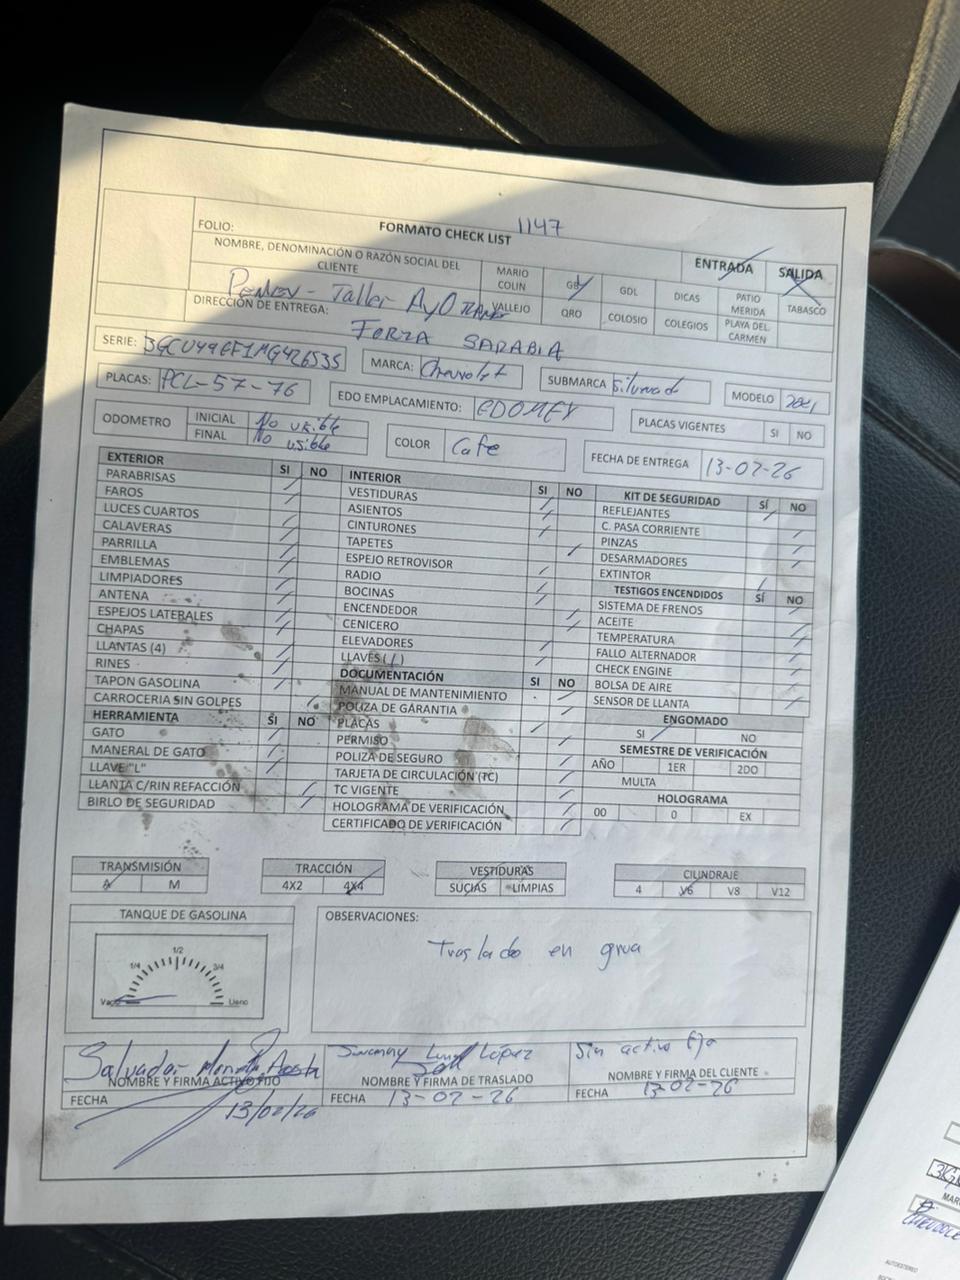 FORMATO CHECK LIST
FOLIO: 1147
NOMBRE, DENOMINACIÓN O RAZÓN SOCIAL DEL CLIENTE
ENTRADA SALIDA
MARIO COLIN GB GDL DICAS PATIO MERIDA TABASCO
Taller
VALLEJO QRO COLOSIO COLEGIOS PLAYA DEL CARMEN
DIRECCIÓN DE ENTREGA: FORZA SARABIA
SERIE: MARCA: Chevrolet SUBMARCA MODELO 2021
PLACAS: PCL-57-76 EDO EMPLACAMIENTO: EDOMEX PLACAS VIGENTES SI NO
ODOMETRO INICIAL No visible
FINAL No visible
COLOR Cafe FECHA DE ENTREGA 13-02-26
EXTERIOR SI NO
PARABRISAS
FAROS
LUCES CUARTOS
CALAVERAS
PARRILLA
EMBLEMAS
LIMPIADORES
ANTENA
ESPEJOS LATERALES
CHAPAS
LLANTAS (4)
RINES
TAPON GASOLINA
CARROCERIA SIN GOLPES
HERRAMIENTA SI NO
GATO
MANERAL DE GATO
LLAVE "L"
LLANTA C/RIN REFACCIÓN
BIRLO DE SEGURIDAD
INTERIOR SI NO
VESTIDURAS
ASIENTOS
CINTURONES
TAPETES
ESPEJO RETROVISOR
RADIO
BOCINAS
ENCENDEDOR
CENICERO
ELEVADORES
LLAVES (1)
DOCUMENTACIÓN SI NO
MANUAL DE MANTENIMIENTO
POLIZA DE GARANTIA
PLACAS
PERMISO
POLIZA DE SEGURO
TARJETA DE CIRCULACIÓN (TC)
TC VIGENTE
HOLOGRAMA DE VERIFICACIÓN
CERTIFICADO DE VERIFICACIÓN
KIT DE SEGURIDAD SÍ NO
REFLEJANTES
C. PASA CORRIENTE
PINZAS
DESARMADORES
EXTINTOR
TESTIGOS ENCENDIDOS SÍ NO
SISTEMA DE FRENOS
ACEITE
TEMPERATURA
FALLO ALTERNADOR
CHECK ENGINE
BOLSA DE AIRE
SENSOR DE LLANTA
ENGOMADO
SI NO
SEMESTRE DE VERIFICACIÓN
AÑO 1ER 2DO
MULTA
HOLOGRAMA
00 0 EX
TRANSMISIÓN
A M
TRACCIÓN
4X2 4X4
VESTIDURAS
SUCIAS LIMPIAS
CILINDRAJE
4 V6 V8 V12
TANQUE DE GASOLINA
1/4 1/2 3/4
Vacio Lleno
OBSERVACIONES:
Traslado en grua
Salvador
NOMBRE Y FIRMA ACTIVO FIJO
FECHA 13/02/26
López
NOMBRE Y FIRMA DE TRASLADO
FECHA 13-02-26
Sin activo fijo
NOMBRE Y FIRMA DEL CLIENTE
FECHA 13-02-26